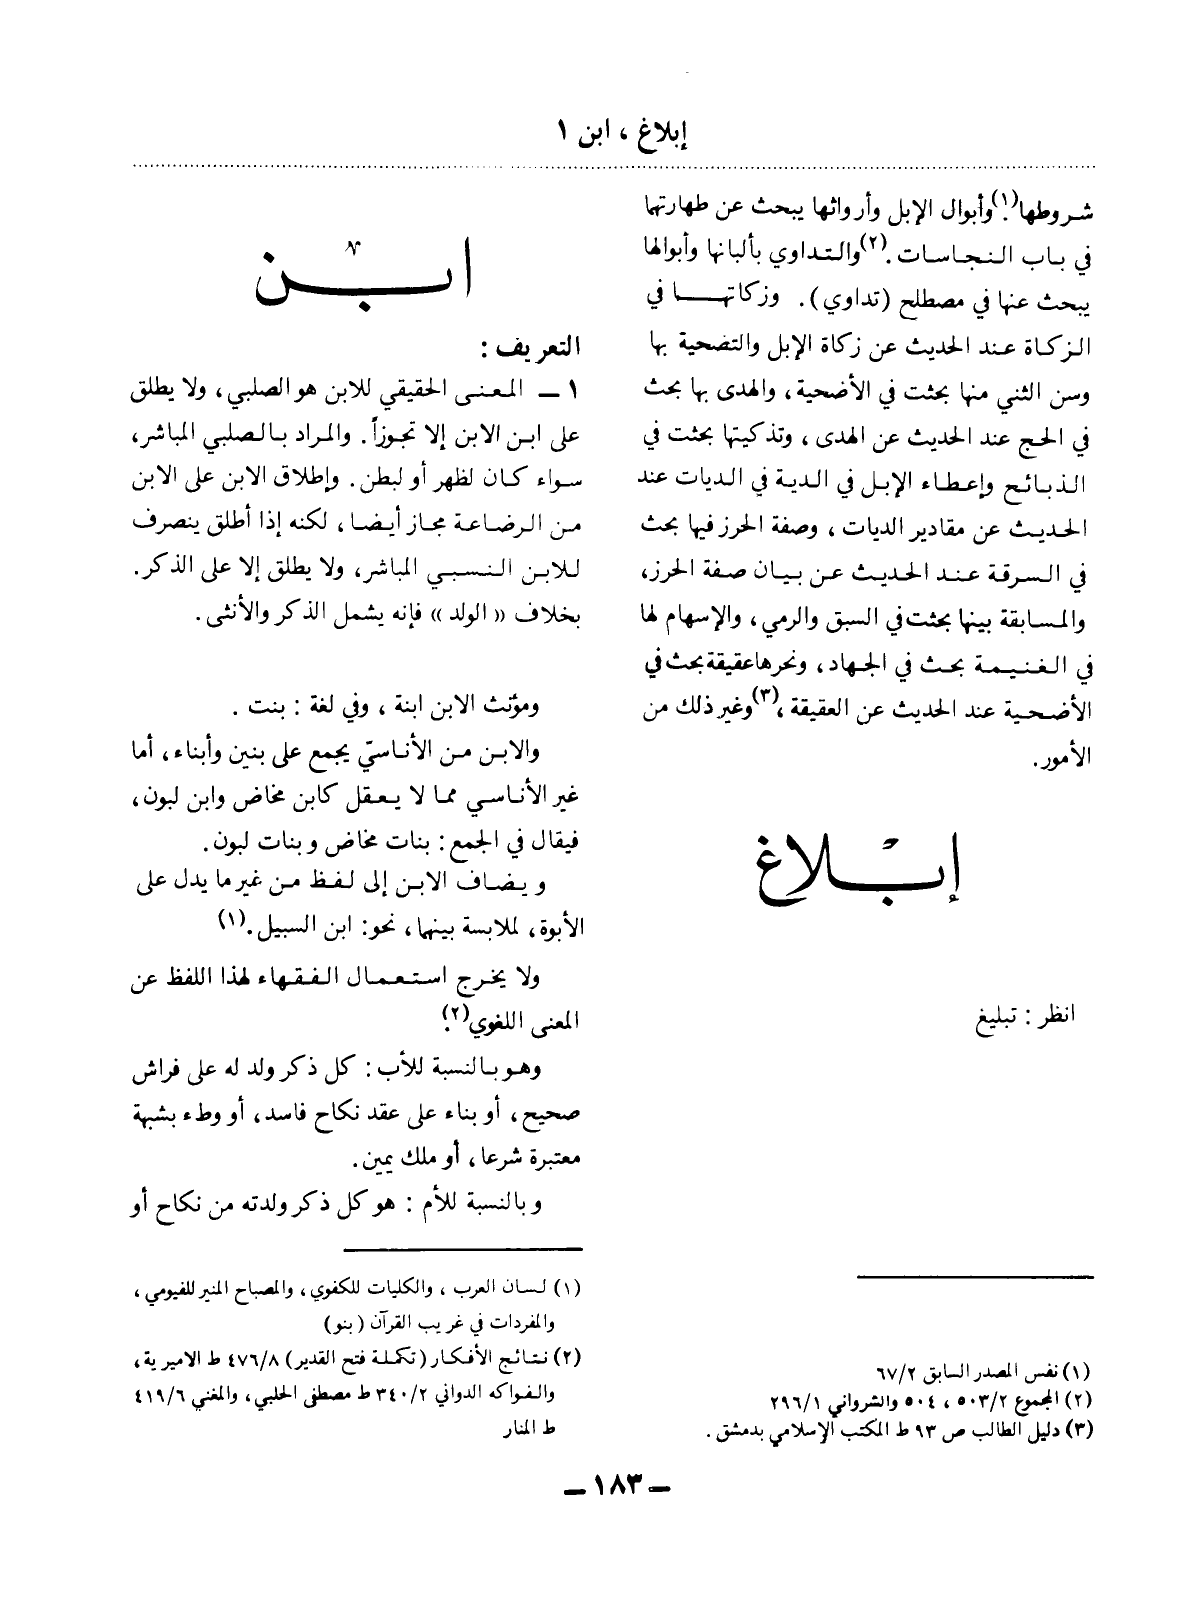 إبلاغ ، ابن ١
شروطها(١). وأبوال الإبل وأرواثها يبحث عن طهارتها
في باب النجاسات .(٢) والتداوي بألبانها وأبوالها
يبحث عنها في مصطلح (تداوي). وزكاتها في
الزكاة عند الحديث عن زكاة الإبل والتضحية بها
وسن الثني منها بحثت في الأضحية، والهدى بها بحث
في الحج عند الحديث عن الهدى ، وتذكيتها بحثت في
الذبائح وإعطاء الإبل في الدية في الديات عند
الحديث عن مقادير الديات ، وصفة الحرز فيها بحث
في السرقة عند الحديث عن بيان صفة الحرز،
والمسابقة بينها بحثت في السبق والرمي، والإسهام لها
في الغنيمة بحث في الجهاد، ونحرها عقيقة بحث في
الأضحية عند الحديث عن العقيقة ،(٣) وغير ذلك من
الأمور.
إبلاغ
انظر : تبليغ
(١) نفس المصدر السابق ٦٧/٢
(٢) المجموع ٥٠٣/٢ ، ٥٠٤ والشرواني ٢٩٦/١
(٣) دليل الطالب ص ٩٣ ط المكتب الإسلامي بدمشق .
ابن
التعريف :
١ ـ المعنى الحقيقي للابن هو الصلبي، ولا يطلق
على ابن الابن إلا تجوزاً. والمراد بالصلبي المباشر،
سواء كان لظهر أو لبطن. وإطلاق الابن على الابن
من الرضاعة مجاز أيضا، لكنه إذا أطلق ينصرف
للابن النسبي المباشر، ولا يطلق إلا على الذكر.
بخلاف «الولد» فإنه يشمل الذكر والأنثى.
ومؤنث الابن ابنة ، وفي لغة : بنت .
والابن من الأناسيّ يجمع على بنين وأبناء، أما
غير الأناسي مما لا يعقل كابن مخاض وابن لبون،
فيقال في الجمع : بنات مخاض وبنات لبون.
ويضاف الابن إلى لفظ من غير ما يدل على
الأبوة، لملابسة بينهما، نحو: ابن السبيل.(١)
ولا يخرج استعمال الفقهاء لهذا اللفظ عن
المعنى اللغوي(٢).
وهو بالنسبة للأب : كل ذكر ولد له على فراش
صحيح، أو بناء على عقد نكاح فاسد، أو وطء بشبهة
معتبرة شرعا، أو ملك يمين.
وبالنسبة للأم : هو كل ذكر ولدته من نكاح أو
(١) لسان العرب ، والكليات للكفوي، والمصباح المنير للفيومي ،
والمفردات في غريب القرآن (بنو)
(٢) نتائج الأفكار (تكملة فتح القدير) ٤٧٦/٨ ط الاميرية،
والفواكه الدواني ٣٤٠/٢ ط مصطفى الحلبي، والمغني ٤١٩/٦
ط المنار
ـ ١٨٣ ـ